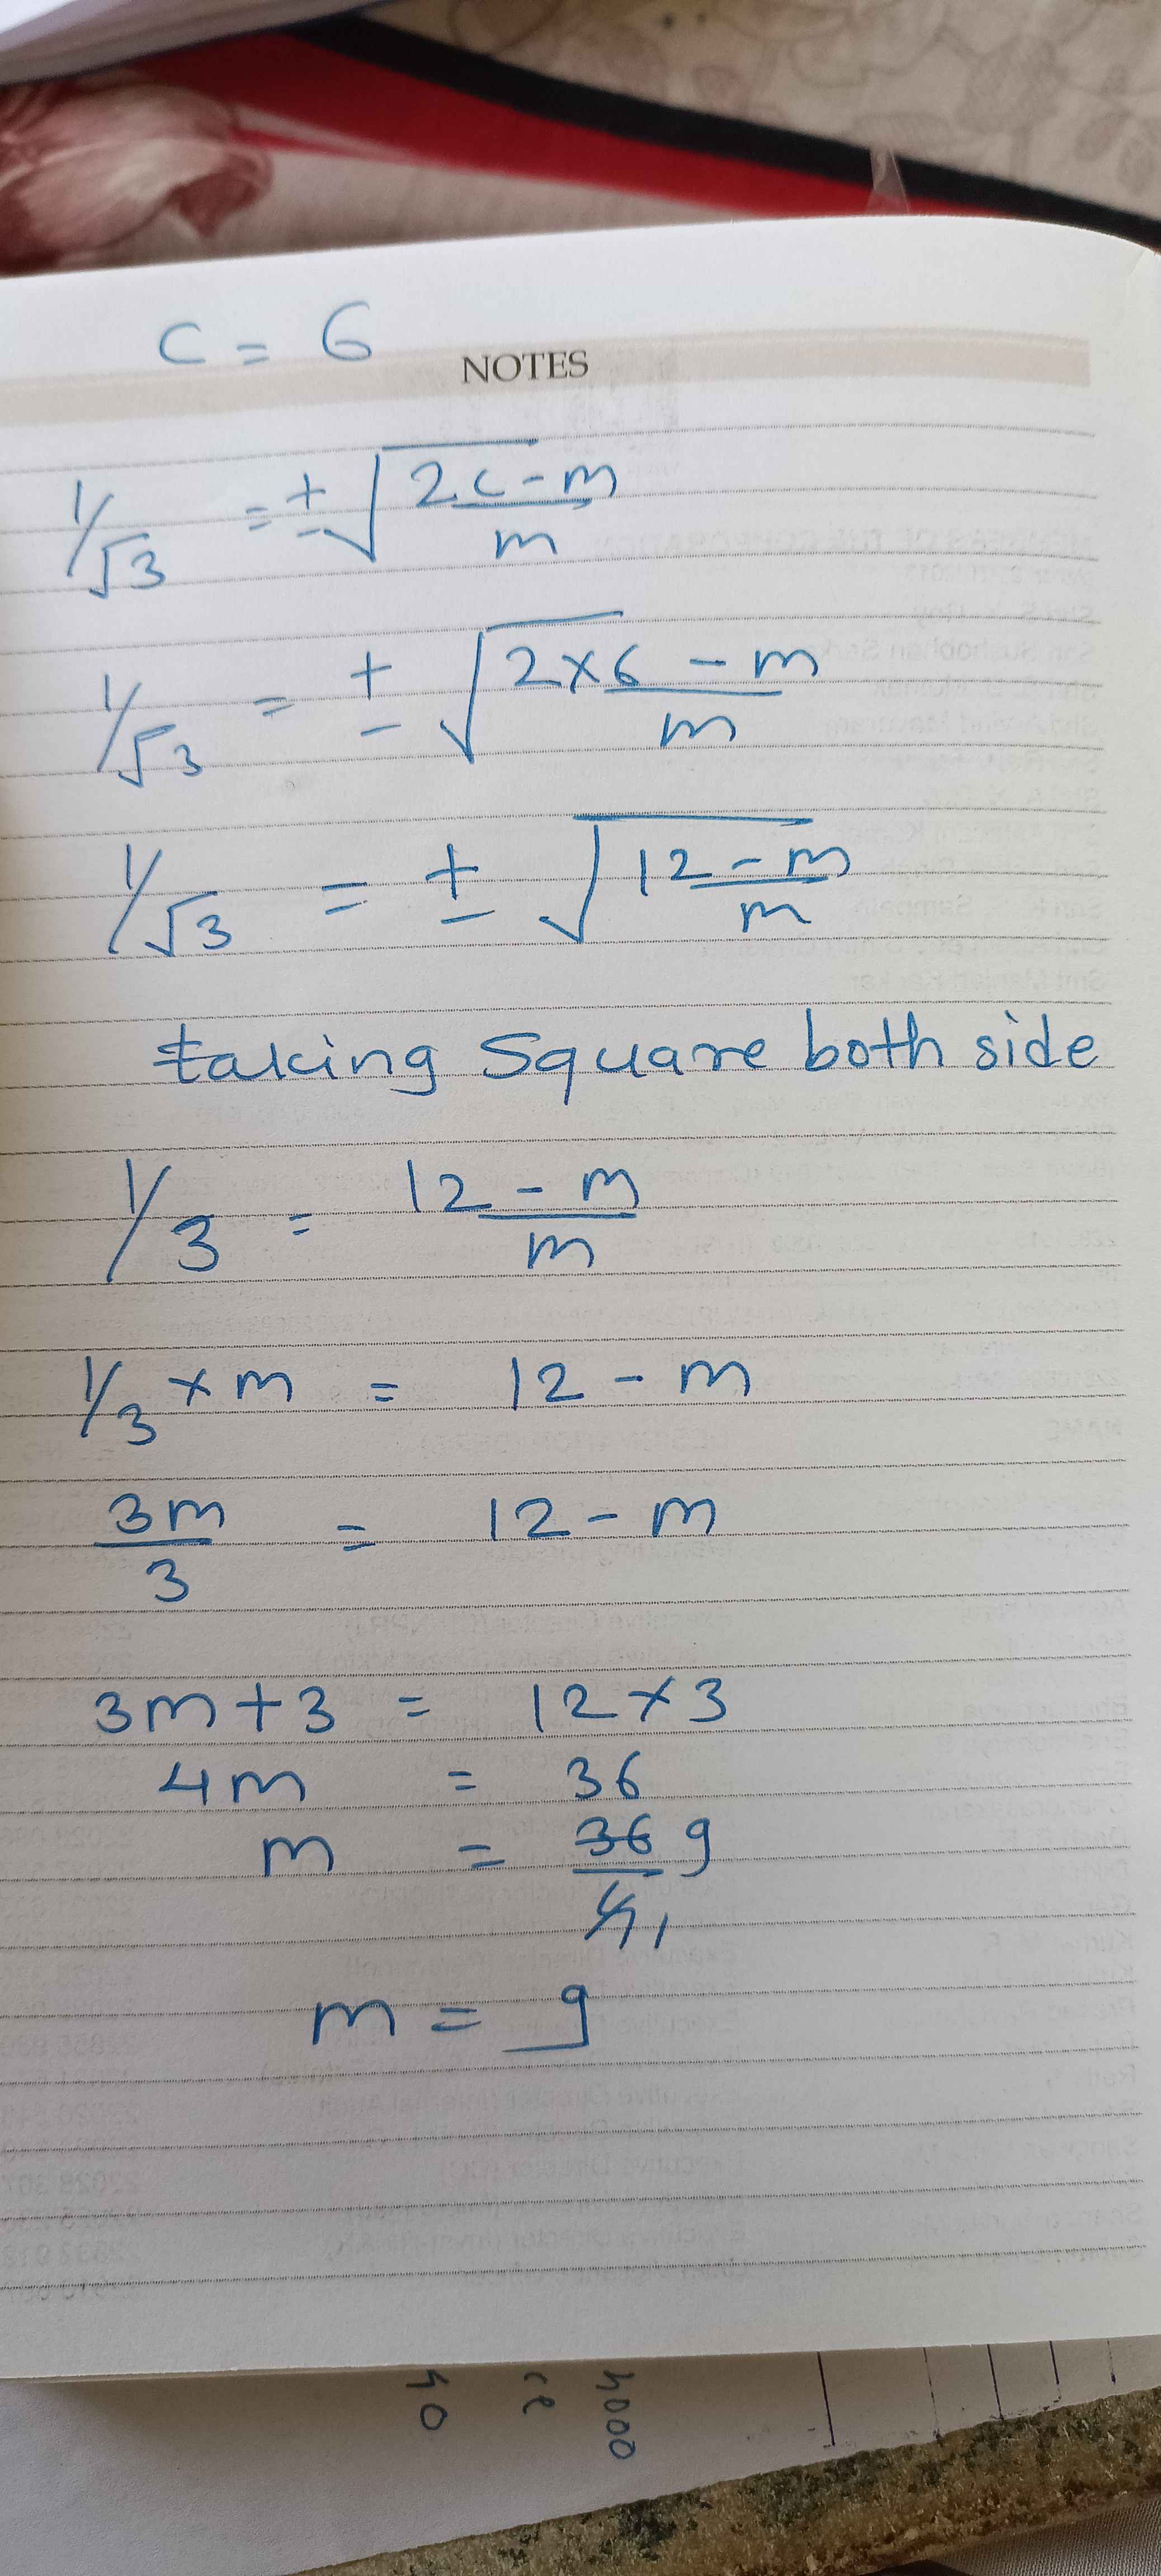 C = 6
NOTES
1/√3 = ± √(2c - m / m)
1/√3 = ± √(2×6 - m / m)
1/√3 = ± √(12 - m / m)
taking Square both side
1/3 = 12 - m / m
1/3 × m = 12 - m
3m / 3 = 12 - m
3m + 3 = 12 × 3
4m = 36
m = 36 9 / 4 1
m = 9
40
4000